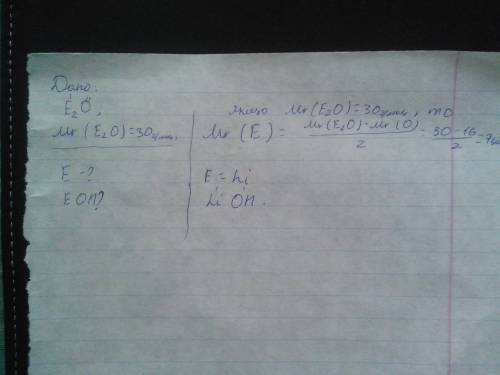 Дано:
E₂O,
Mr (E₂O) = 30 г/моль
E - ?
E OH?
якщо Mr (E₂O) = 30 г/моль, то
Mr (E) = (Mr(E₂O) - Mr(O))/2 = (30 - 16)/2 = 7
E = Li
Li OH.